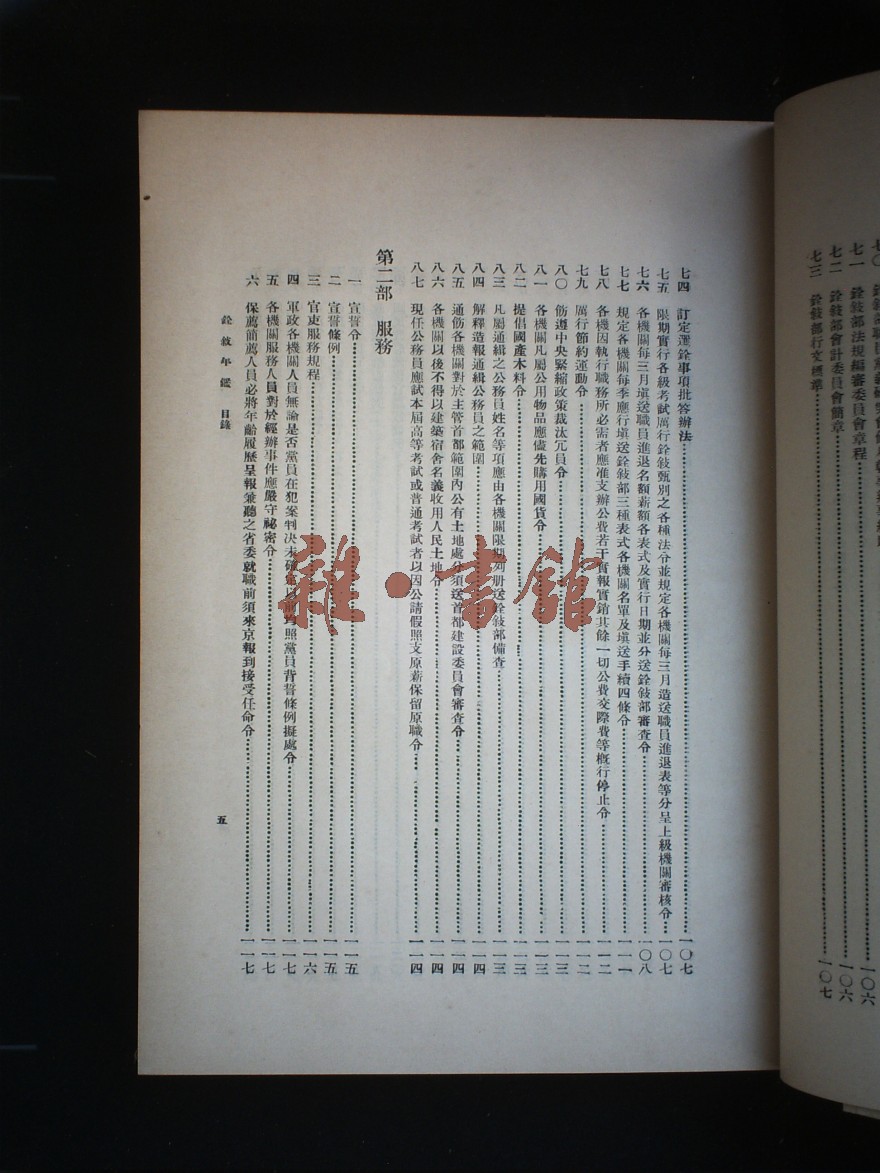 七一 銓敘部法規編審委員會章程
七二 銓敘部會計委員會簡章……一〇六
七三 銓敘部行文標準……一〇七
七四 訂定選銓事項批答辦法……一〇七
七五 限期實行各級考試厲行銓敍甄別之各種法令並規定各機關每三月造送職員進退表等分呈上級機關審核令……一〇七
七六 各機關每三月填送職員進退名額薪額各表式及實行日期並分送銓敍部審查令……一〇八
七七 規定各機關每季應行填送銓敍部三種表式各機關名單及填送手續四條令……一一一
七八 各機關因執行職務所必需者應准支辦公費若干實報實銷其餘一切公費交際費等概行停止令……一一二
七九 厲行節約運動令……一一二
八〇 飭遵中央緊縮政策裁汰冗員令……一一三
八一 各機關凡屬公用物品應儘先購用國貨令……一一三
八二 提倡國產木料令……一一三
八三 凡屬通緝之公務員姓名等項應由各機關限期列册送銓敍部備查……一一三
八四 解釋造報通緝公務員之範圍……一一四
八五 通飭各機關對於主管首都範圍內公有土地處分須送首都建設委員會審查令……一一四
八六 各機關以後不得以建築宿舍名義收用人民土地令……一一四
八七 現任公務員應試本屆高等考試或普通考試者以因公請假照支原薪保留原職令……一一四
第二部 服務
一 宣誓令……一一五
二 宣誓條例……一一五
三 官吏服務規程……一一六
四 軍政各機關人員無論是否黨員在犯案判决未確定以前均照黨員背誓條例擬處令……一一七
五 各機關服務人員對於經辦事件應嚴守祕密令……一一七
六 保薦簡薦人員必將年齡履歷呈報兼聽之省委就職前須來京報到接受任命令……一一七
銓敘年鑑 目錄
五
雜·書館